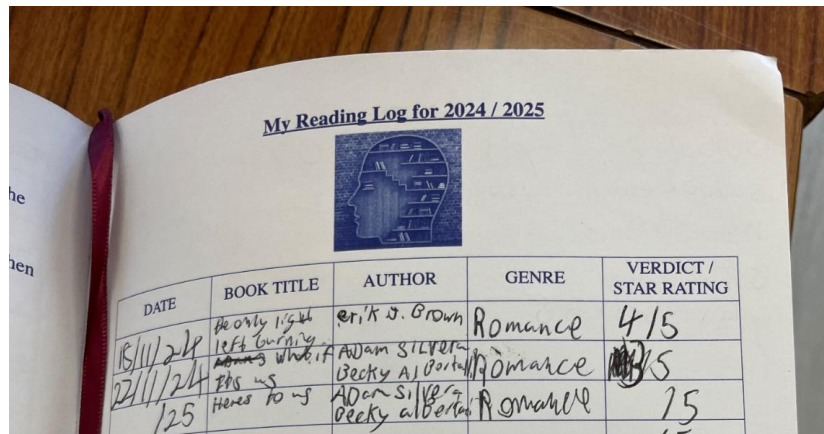 he
hen
My Reading Log for 2024 / 2025
DATE BOOK TITLE AUTHOR GENRE VERDICT / STAR RATING
15/11/24 only light left burning erik J. Brown Romance 4/5
22/11/24 what if its us ADam SILVera Becky Al Romance /5
/25 Heres to us ADam SILVera Becky alberta Romance /5